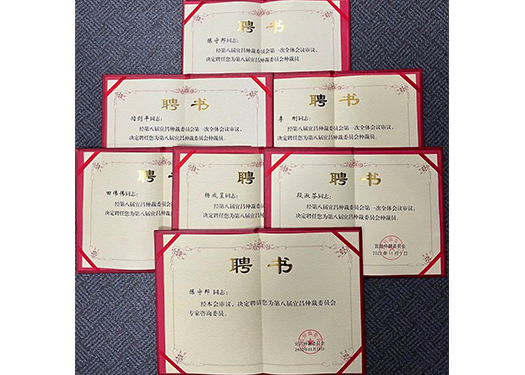 聘 书
陈守邦同志：
经第八届宜昌仲裁委员会第一次全体会议审议，
决定聘任您为第八届宜昌仲裁委员会仲裁员。
聘 书
同志：
经第八届宜昌仲裁委员会第一次全体会议审议，
决定聘任您为第八届宜昌仲裁委员会仲裁员。
聘 书
李 刚同志：
经第八届宜昌仲裁委员会第一次全体会议审议，
决定聘任您为第八届宜昌仲裁委员会仲裁员。
聘
田伟伟同志：
经第八届宜昌仲裁
决定聘任您为第八届宜
聘 书
杨成昊同志：
经第八届宜昌仲裁委
决定聘任您为第八届宜昌
聘 书
段淑芬同志：
经第八届宜昌仲裁委员会第一次全体会议审议，
决定聘任您为第八届宜昌仲裁委员会仲裁员。
宜昌仲裁委员会
聘 书
陈守邦同志：
经本会审议，决定聘请您为第八届宜昌仲裁委员会
专家咨询委员。
宜昌仲裁委员会